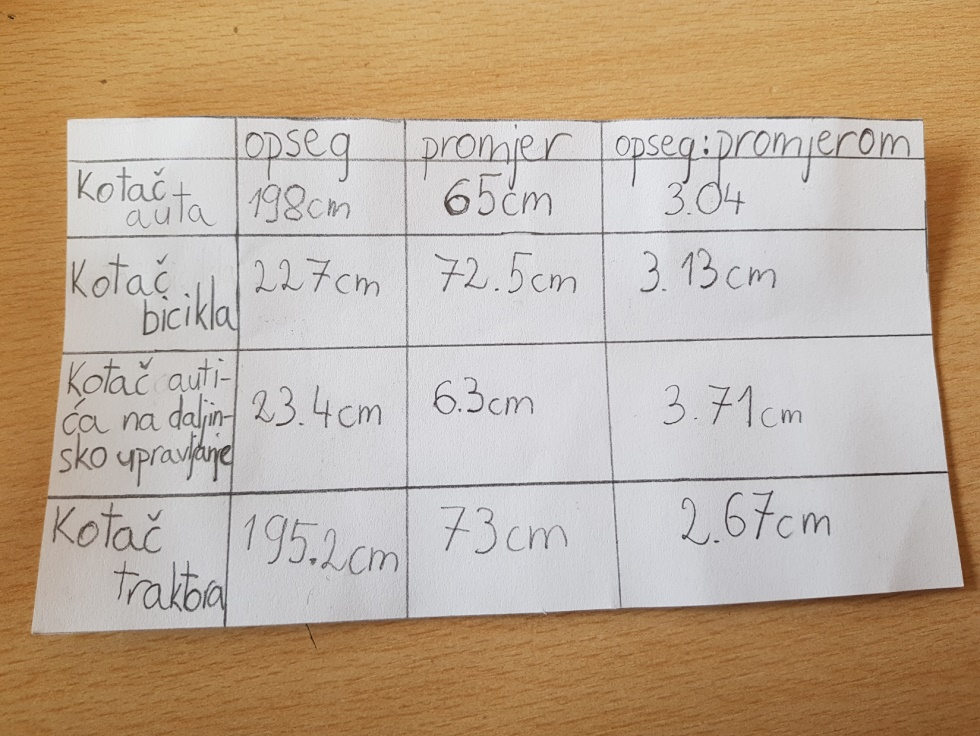 opseg promjer opseg:promjerom
Kotač
auta 198cm 65cm 3.04
Kotač
bicikla 227cm 72.5cm 3.13cm
Kotač auti-
ća na daljin-
sko upravljanje 23.4cm 6.3cm 3.71cm
Kotač
traktora 195.2cm 73cm 2.67cm